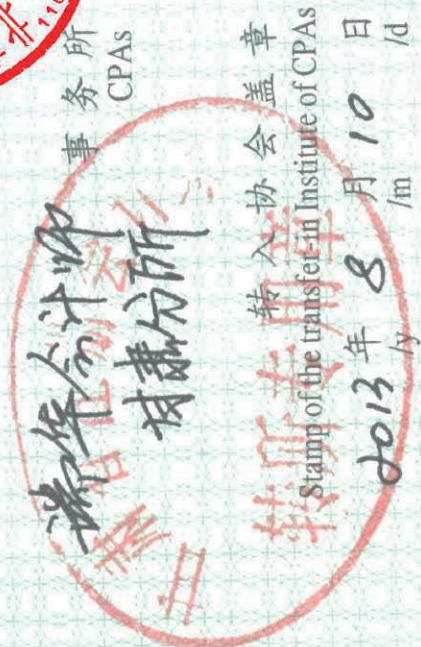 瑞华会计师
甘肃分所
事务所
CPAs
转入协会盖章
Stamp of the transfer-in Institute of CPAs
2013年8月10日
/y /m /d
转所专用章
110